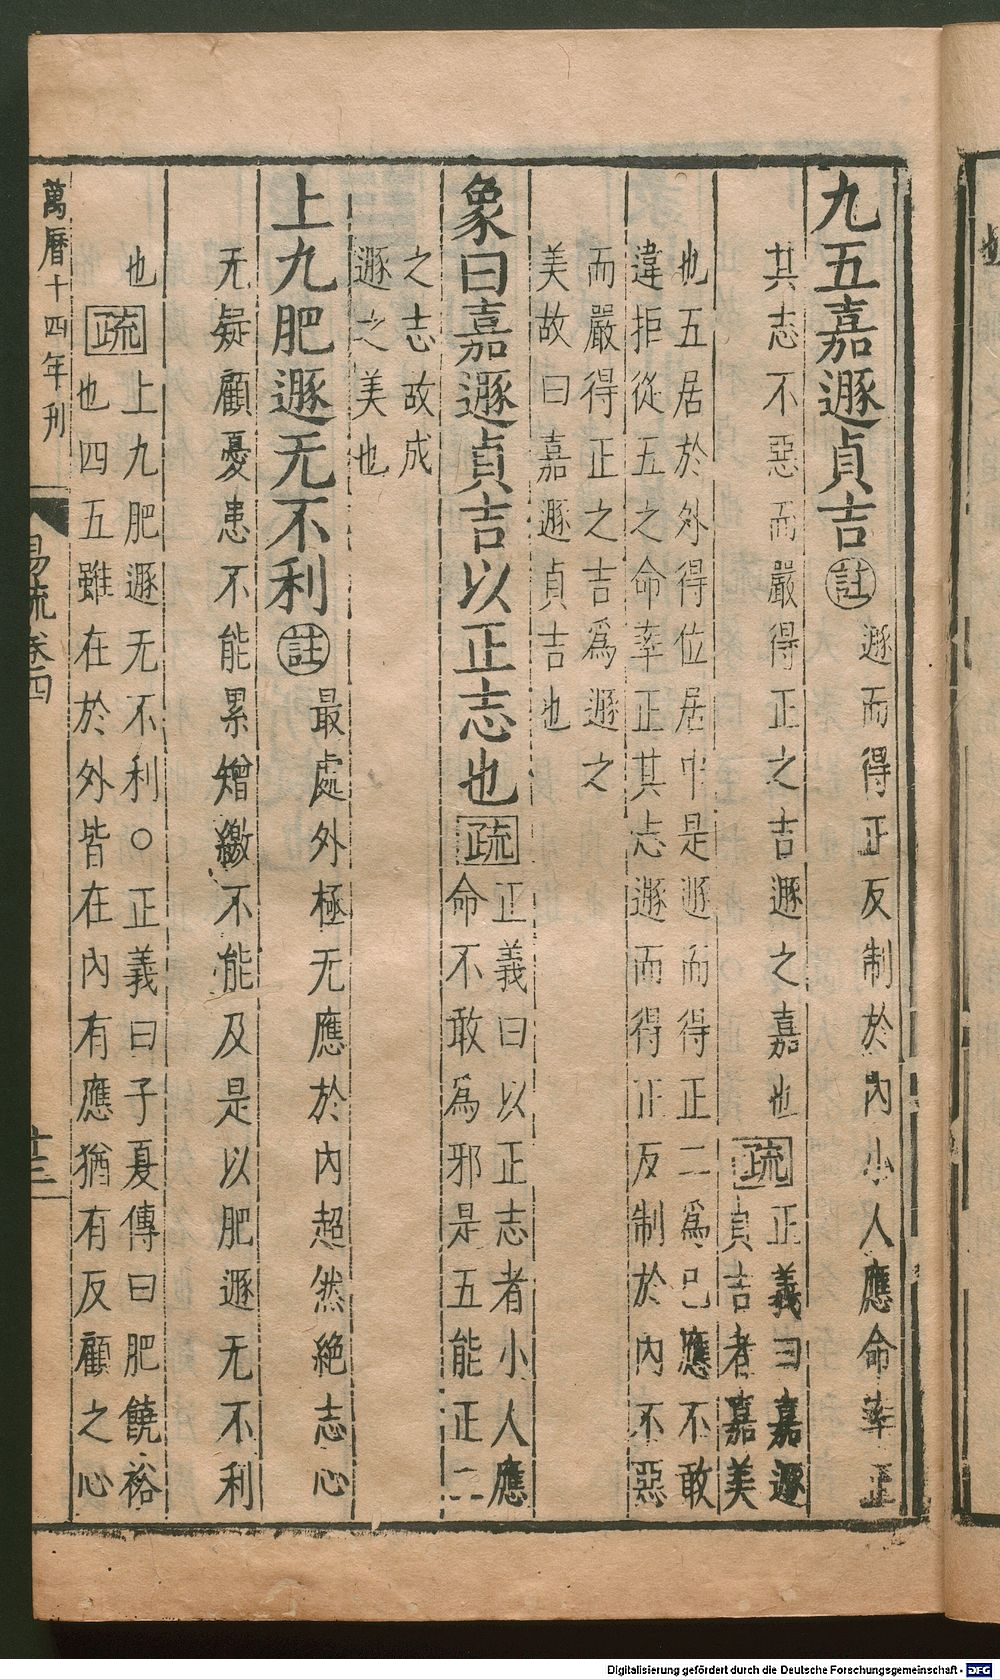 九五嘉遯貞吉註遯而得正反制於內小人應命率正
其志不惡而嚴得正之吉遯之嘉也疏正義曰嘉遯
貞吉者嘉美
也五居於外得位居中是遯而得正二爲己應不敢
違拒從五之命率正其志遯而得正反制於內不惡
而嚴得正之吉爲遯之
美故曰嘉遯貞吉也
象曰嘉遯貞吉以正志也疏正義曰以正志者小人應
命不敢爲邪是五能正二
之志故成
遯之美也
上九肥遯无不利註最處外極无應於內超然絶志心
无疑顧憂患不能累矰繳不能及是以肥遯无不利
也疏上九肥遯无不利○正義曰子夏傳曰肥饒裕
也四五雖在於外皆在內有應猶有反顧之心
萬曆十四年刋
易疏卷四
十三
Digitalisierung gefördert durch die Deutsche Forschungsgemeinschaft - DFG